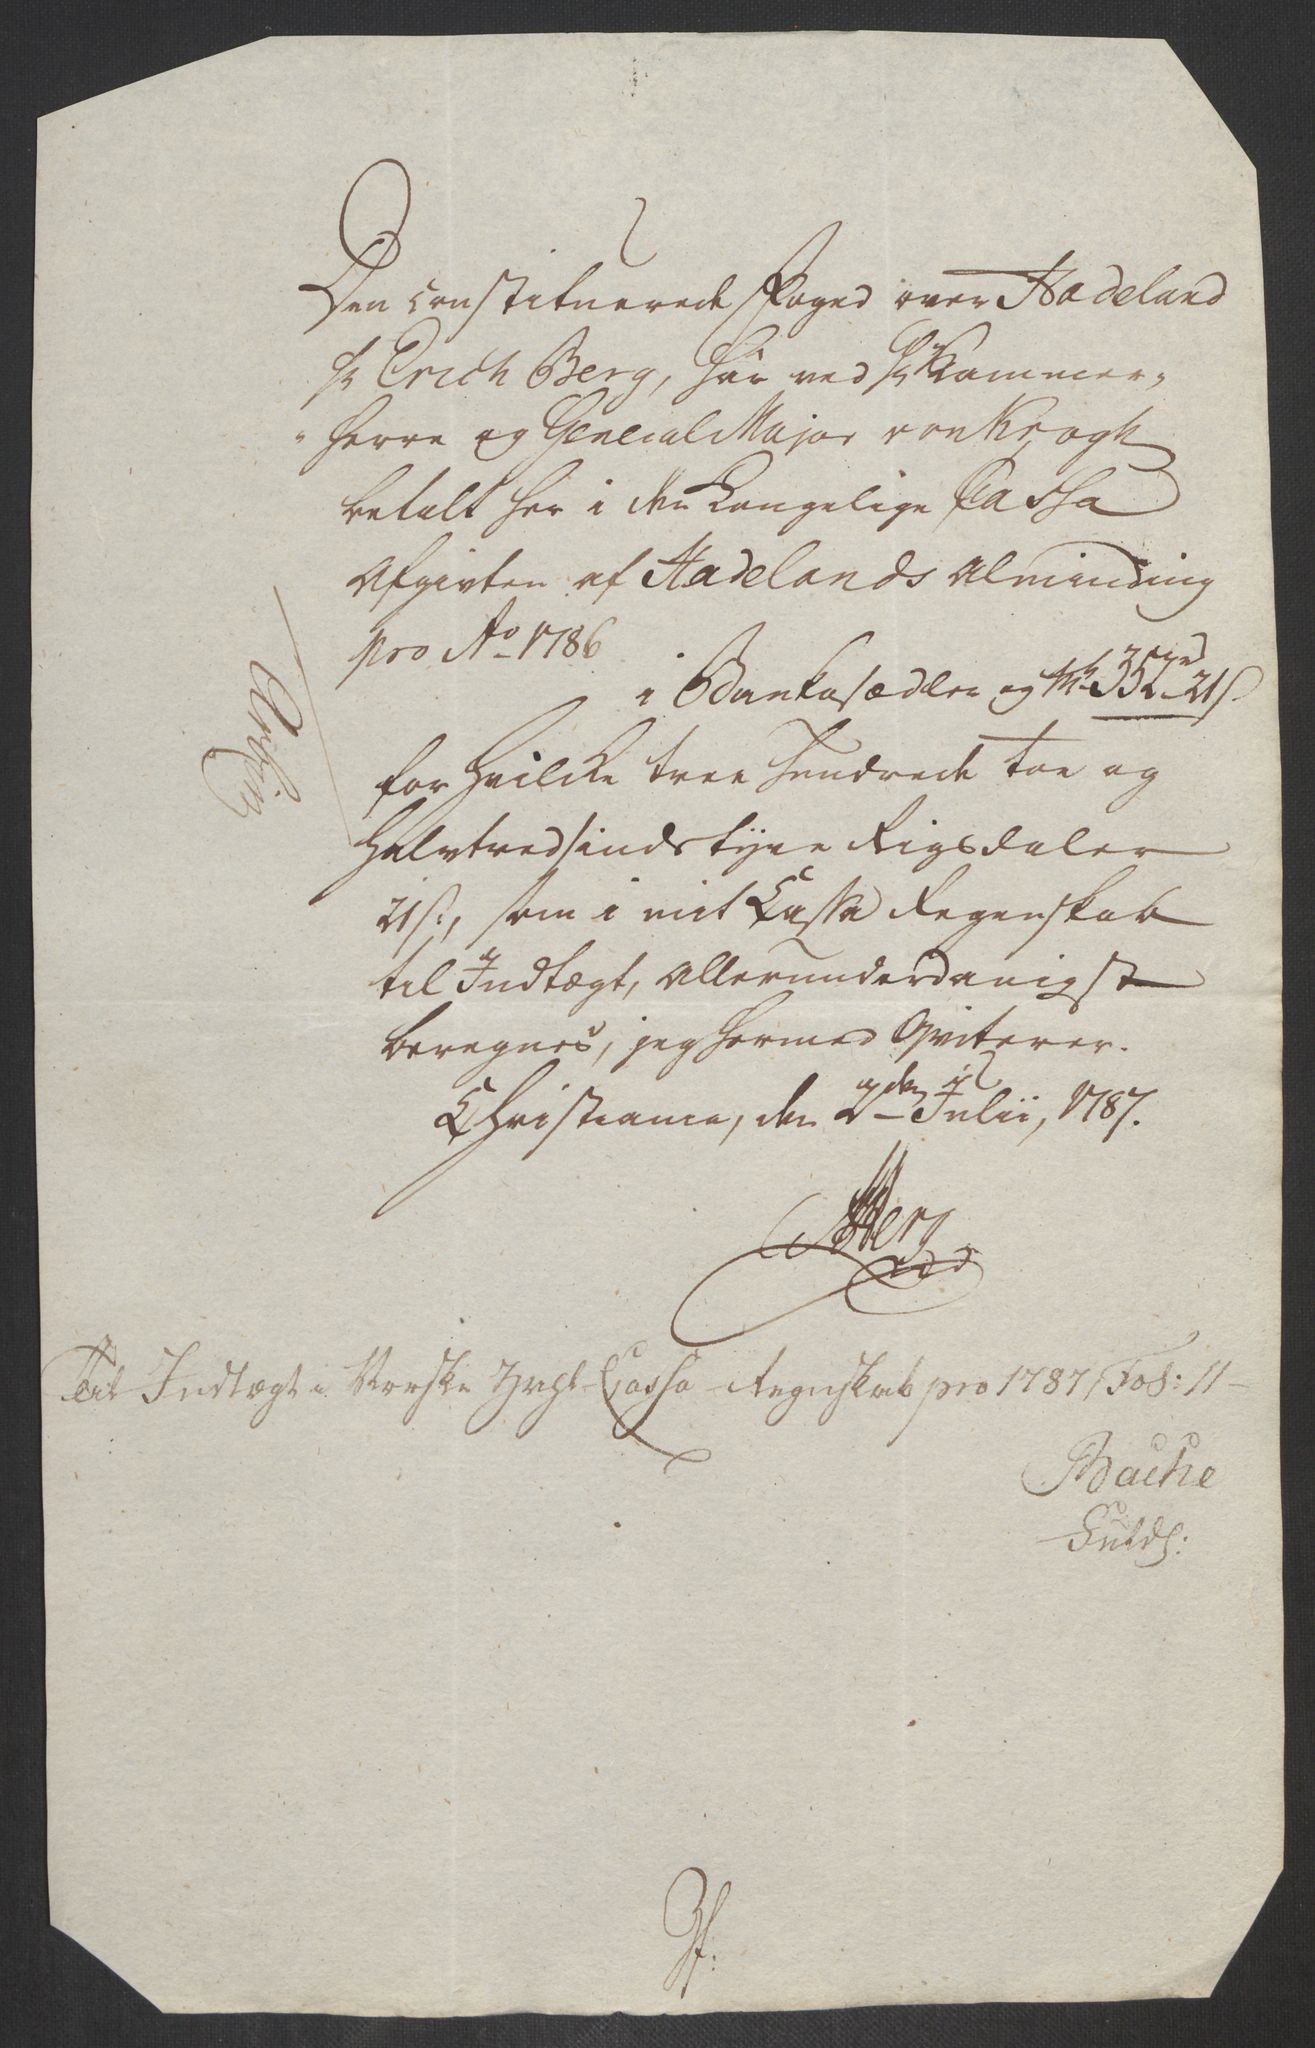 Den constituerede Foged over Hadeland
Hr Erich Berg, har ved Hr Kammer-
herre og General Major von Krogh
betalt her i den Kongelige Cassa
Afgivten af Hadelands Alminding
pro Ao 1786
i Bankosædler og 352 rd 21 s
for hvilcke tree hundrede toe og
halvtredsindstyve Rigsdaler
21 s:, som i mit Cassa Regenskab
til Indtægt, allerunderdanigst
beregnes, jeg hermed Qviterer.
Christiania, den 2den Julii, 1787.
Berg
Til Indtægt i Norske Cassa-Regnskab pro 1787, Fol: 11
Bache